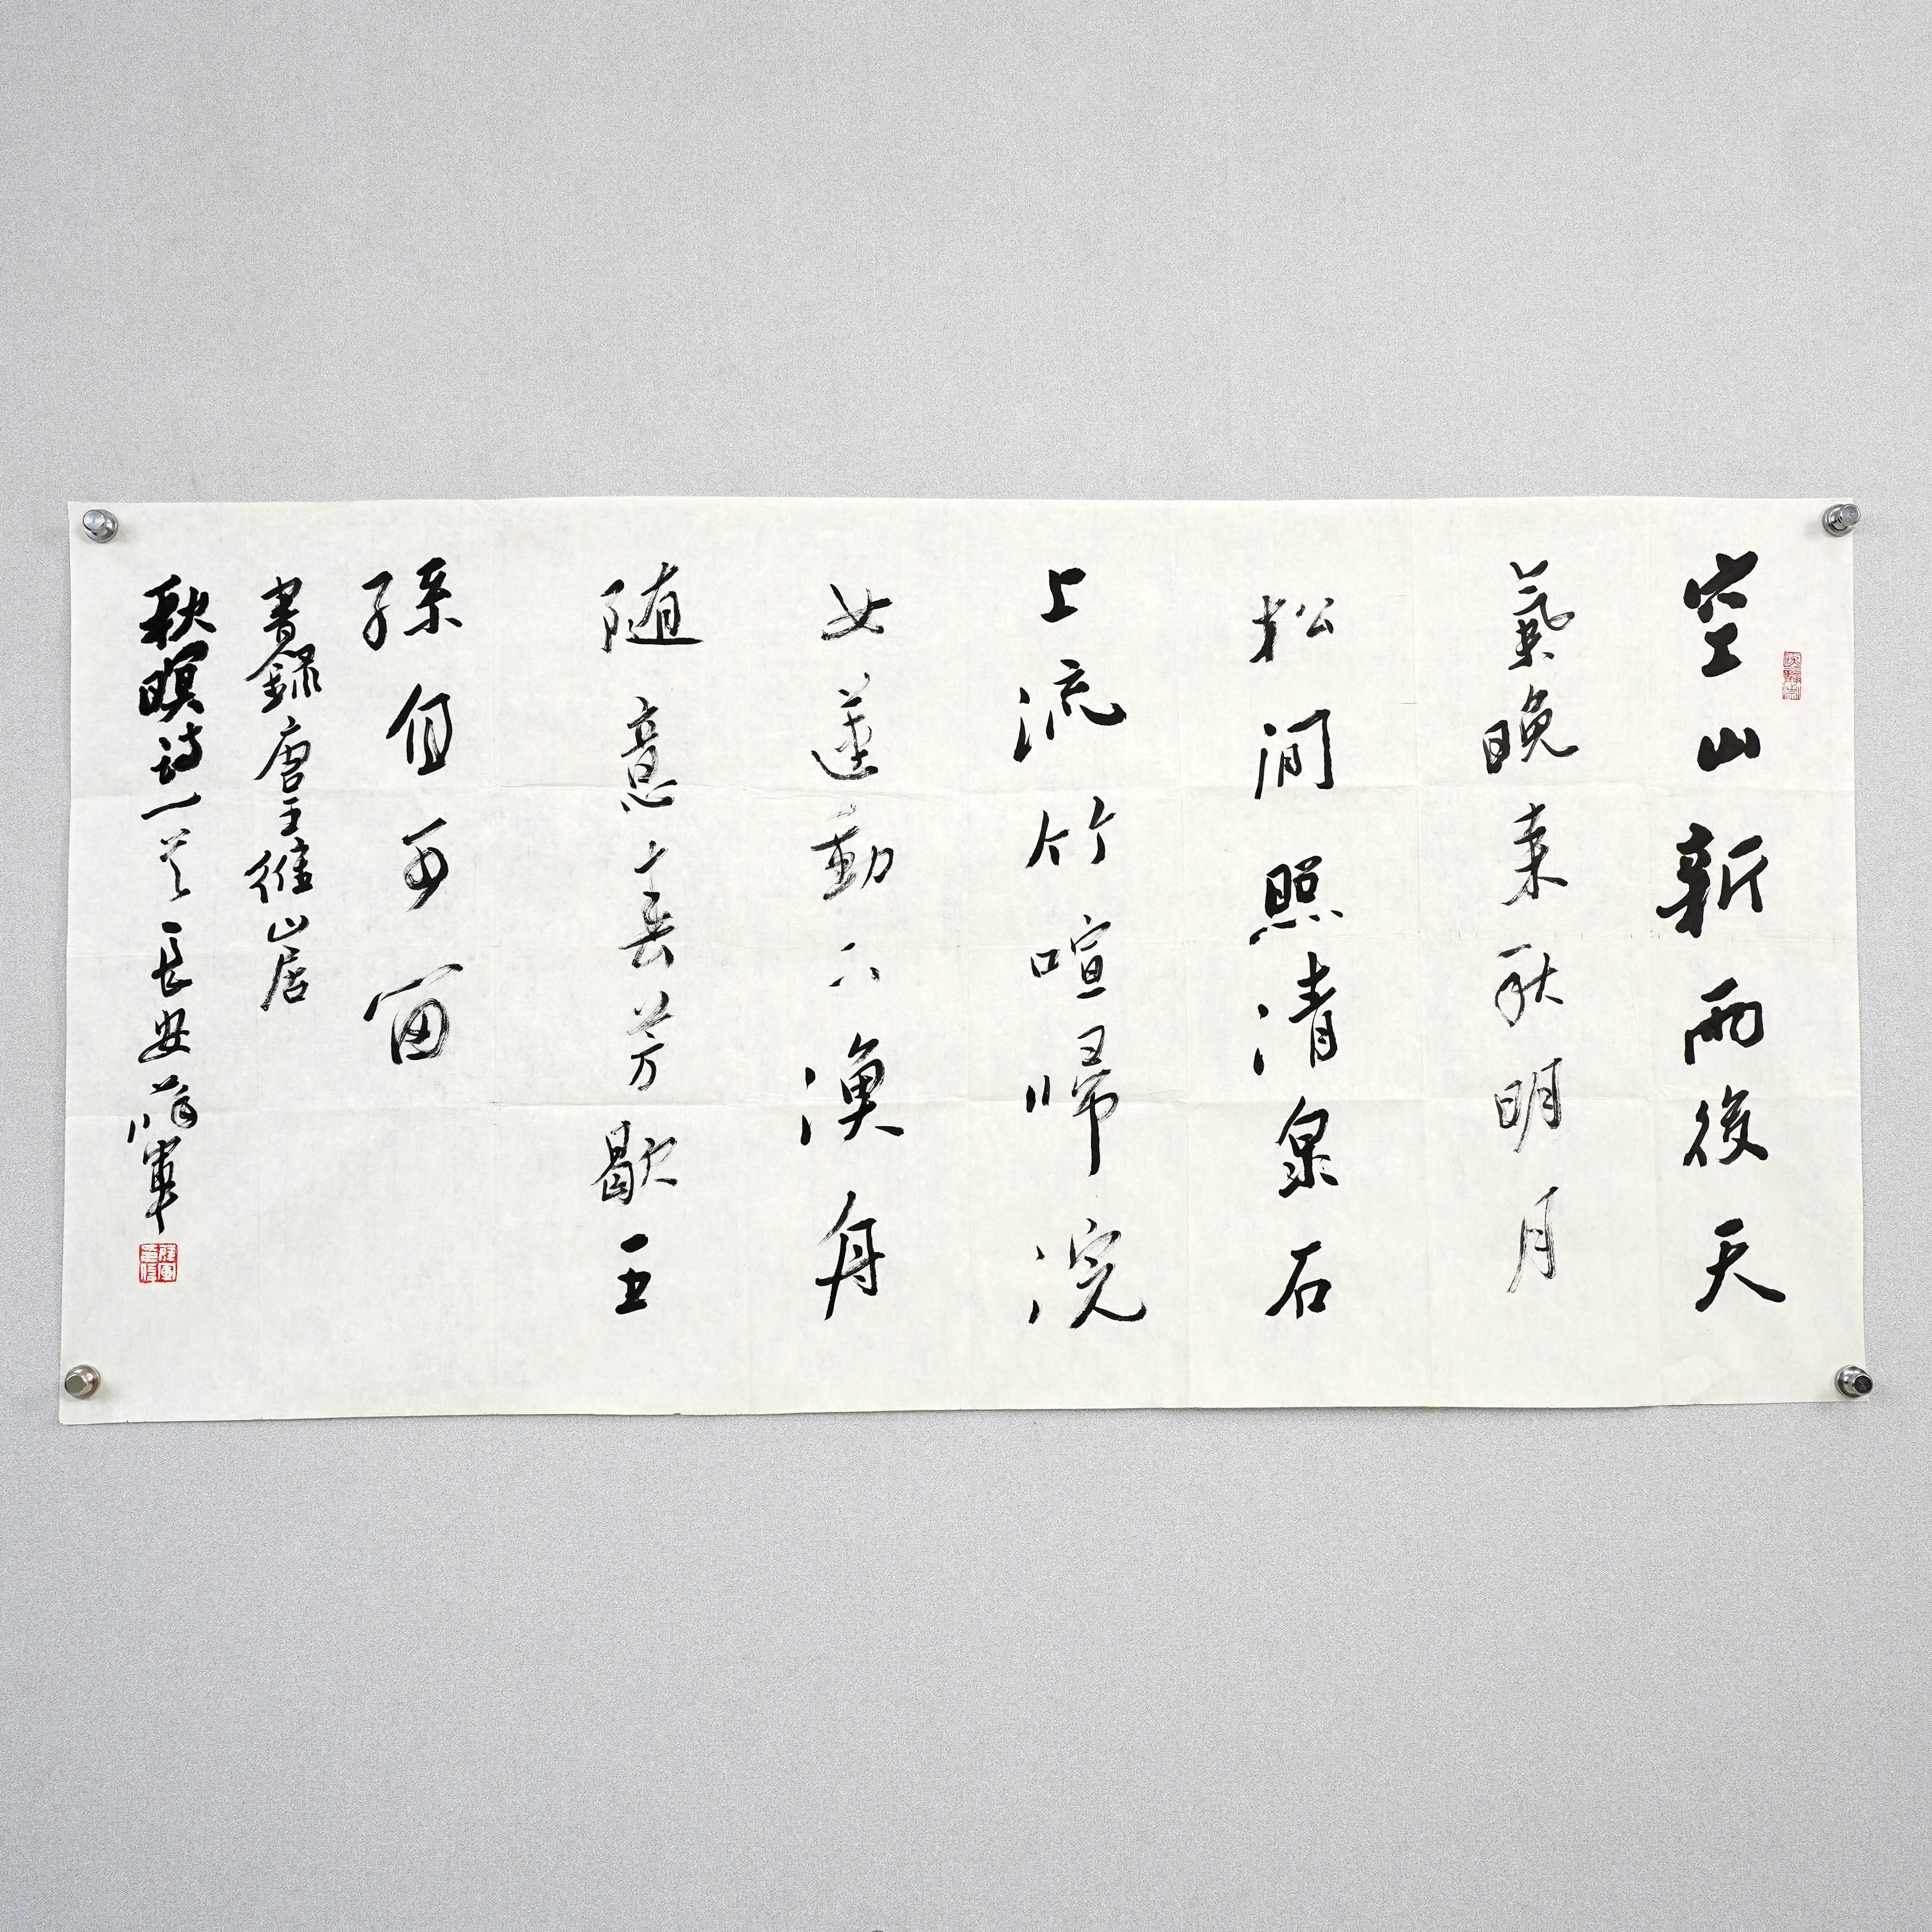 空山新雨後天
氣晚来秋明月
松间照清泉石
上流竹喧歸浣
女蓮動下漁舟
随意春芳歇王
孫自可留
書録唐王維山居
秋暝詩一首長安軍